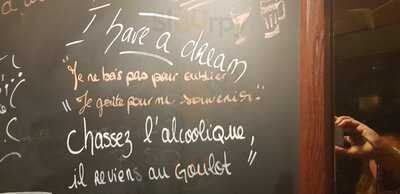 I have a dream
"Je ne bois pas pour oublier
"Je goûte pour me souvenir."
Chassez l'alcoolique,
il reviens au Goulot"